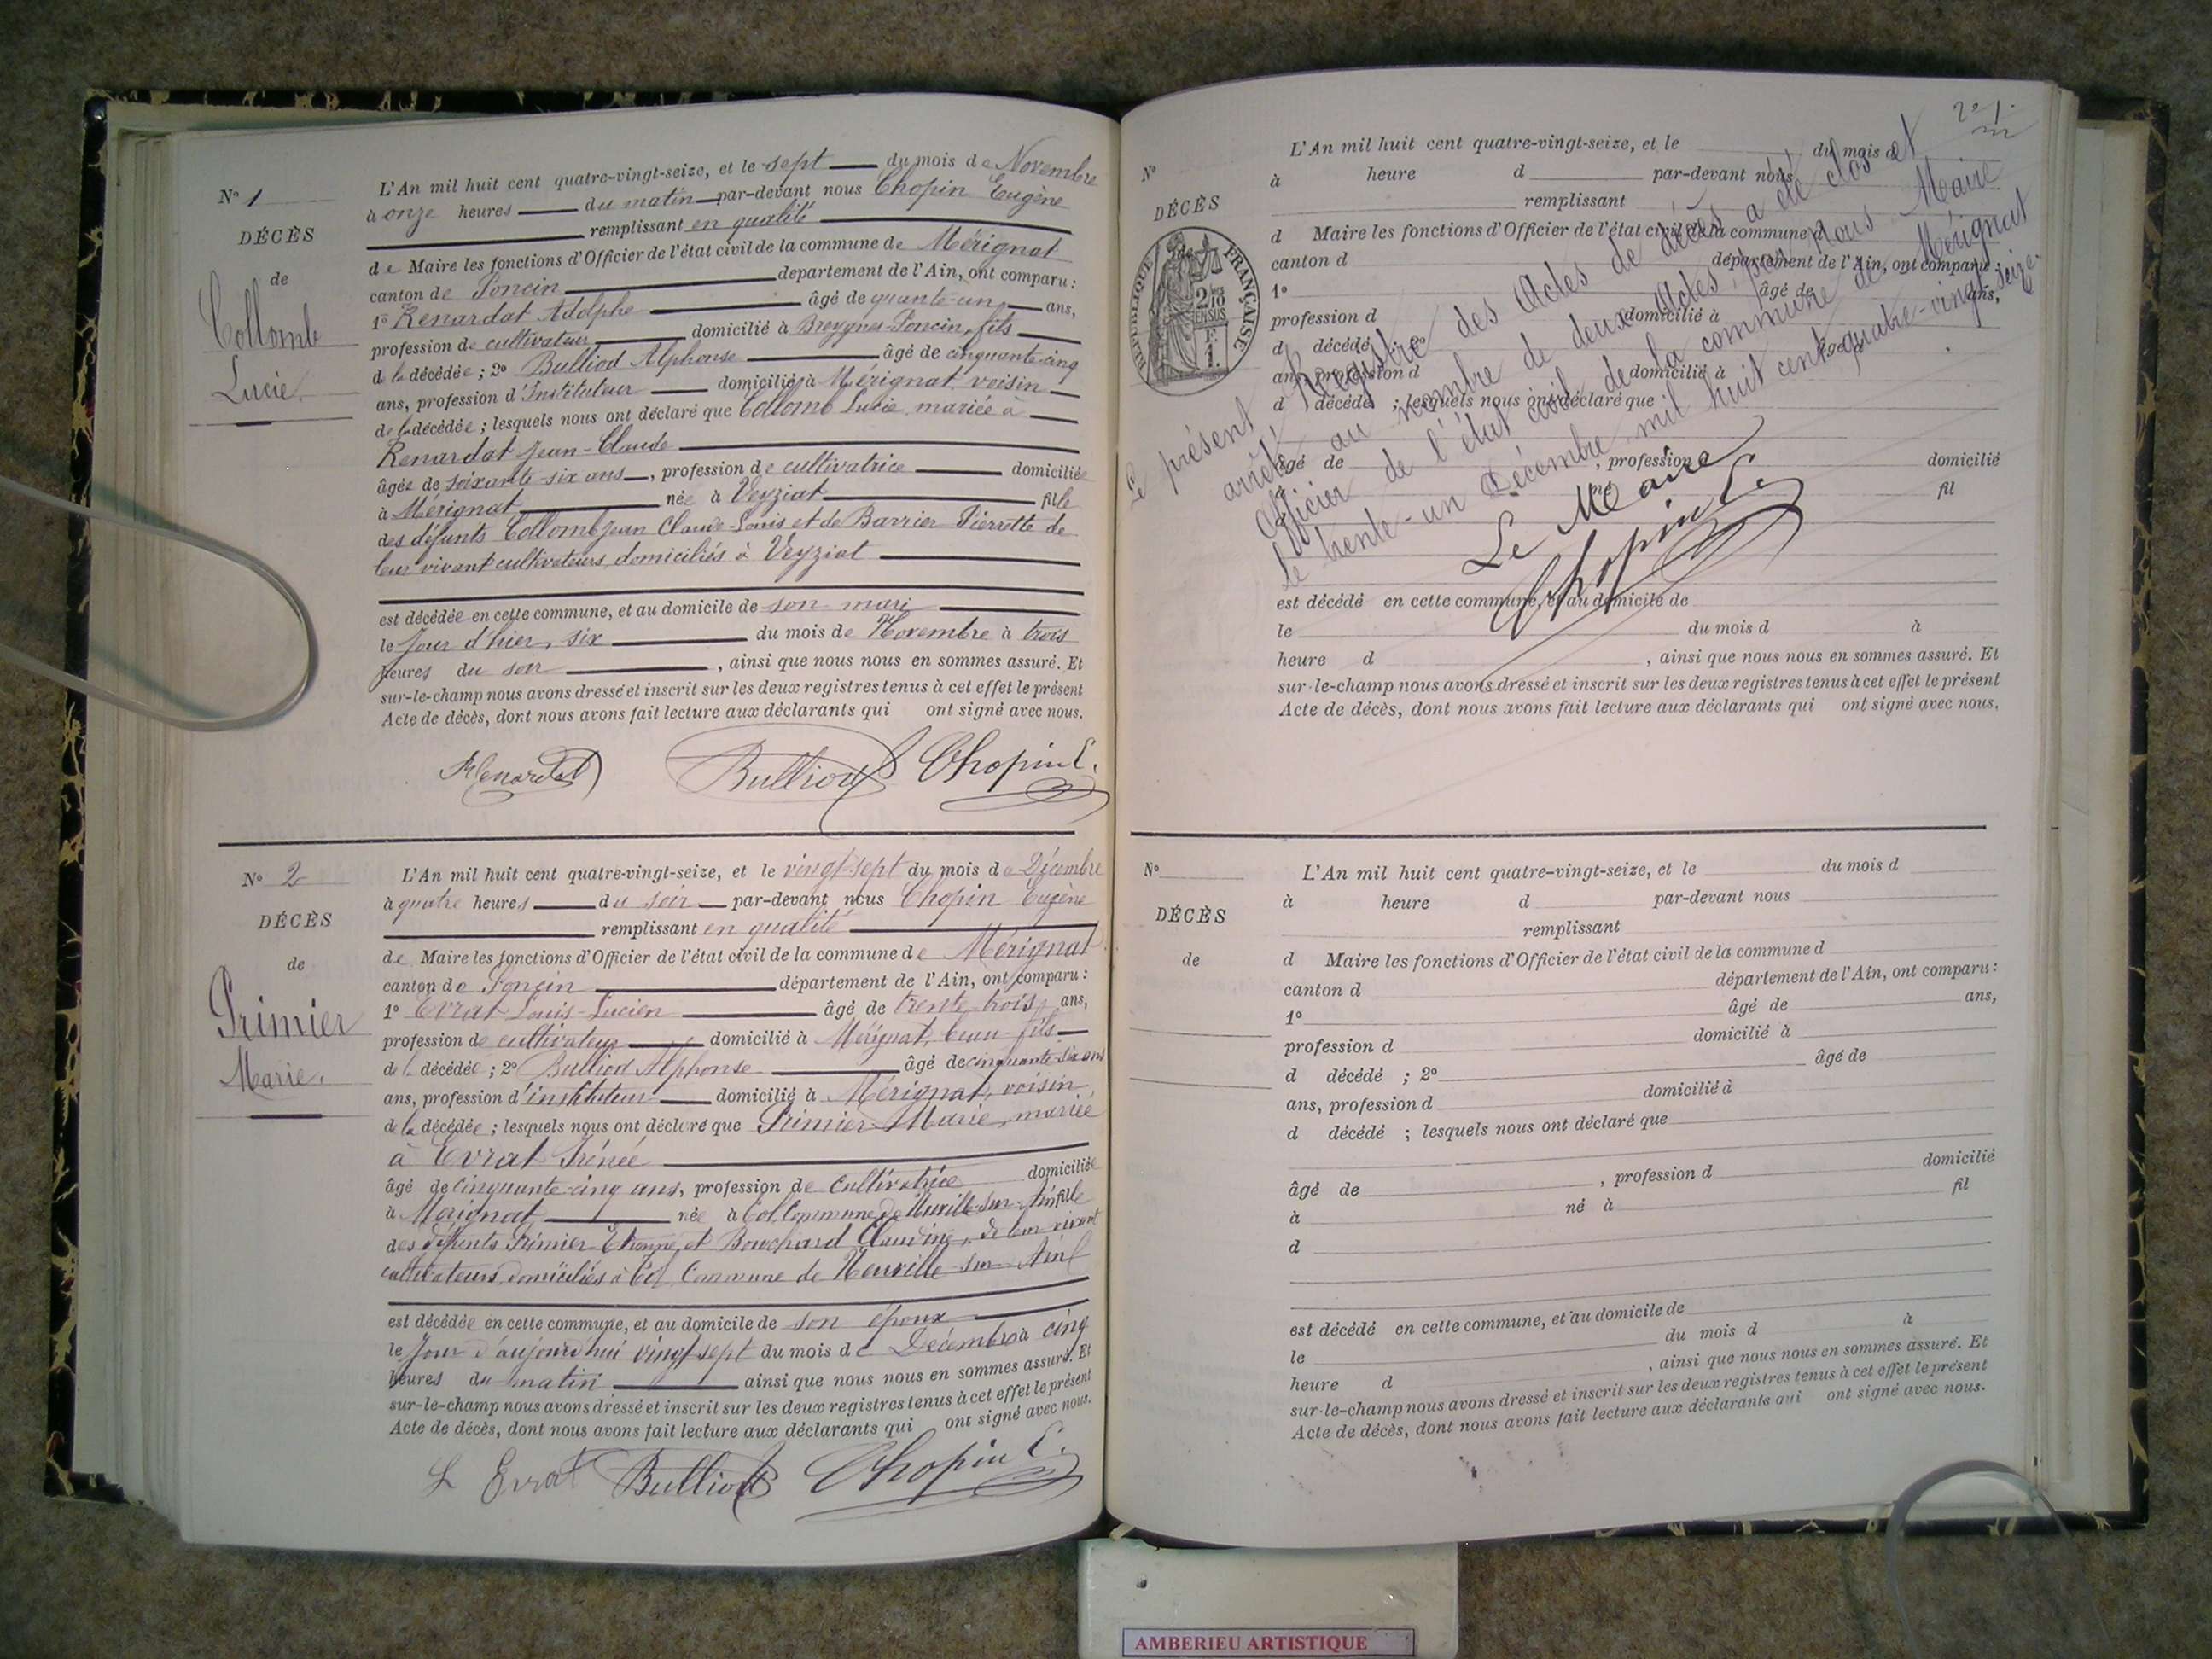 N° 1
DÉCÈS
de
Collomb
Lucie.
L'An mil huit cent quatre-vingt-seize, et le sept du mois de Novembre
à onze heures du matin par-devant nous Chopin Eugène
remplissant en qualité
de Maire les fonctions d'Officier de l'état civil de la commune de Mérignat
canton de Poncin departement de l'Ain, ont comparu :
1° Renardat Adolphe âgé de quante-un ans,
profession de cultivateur domicilié à Breygnes-Poncin, fils
de la décédée ; 2° Bulliod Alphonse âgé de cinquante-cinq
ans, profession d'Instituteur domicilié à Mérignat voisin
de la décédée ; lesquels nous ont déclaré que Collomb Lucie mariée à
Renardat Jean-Claude
âgée de soixante-six ans, profession de cultivatrice domiciliée
à Mérignat née à Veyziat fille
des défunts Collomb Jean Claude-Louis et de Barrier Pierrette de
leur vivant cultivateurs domiciliés à Veyziat
est décédée en cette commune, et au domicile de son mari
le Jour d'hier, six du mois de Novembre à trois
heures du soir , ainsi que nous nous en sommes assuré. Et
sur-le-champ nous avons dressé et inscrit sur les deux registres tenus à cet effet le présent
Acte de décès, dont nous avons fait lecture aux déclarants qui ont signé avec nous.
Renardat Bulliod Chopin E.
N° 2
DÉCÈS
de
Primier
Marie.
L'An mil huit cent quatre-vingt-seize, et le vingt-sept du mois de Décembre
à quatre heures du soir par-devant nous Chopin Eugène
remplissant en qualité
de Maire les fonctions d'Officier de l'état civil de la commune de Mérignat
canton de Poncin département de l'Ain, ont comparu :
1° Evrat Louis-Lucien âgé de trente trois ans,
profession de cultivateur domicilié à Mérignat, beau-fils
de la décédée ; 2° Bulliod Alphonse âgé de cinquante-six ans
ans, profession d'instituteur domicilié à Mérignat, voisin
de la décédée ; lesquels nous ont déclaré que Primier Marie, mariée
à Evrat Irénée
âgé de cinquante-cinq ans, profession de cultivatrice domiciliée
à Mérignat née à Col, Commune de Neuville-sur-Ain fille
des défunts Primier Etienne, et Bouchard Claudine, de leur vivant
cultivateurs, domiciliés à Col, Commune de Neuville-sur-Ain
est décédée en cette commune, et au domicile de son époux
le Jour d'aujourd'hui vingt sept du mois de Décembre à cinq
heures du matin ainsi que nous nous en sommes assuré. Et
sur-le-champ nous avons dressé et inscrit sur les deux registres tenus à cet effet le présent
Acte de décès, dont nous avons fait lecture aux déclarants qui ont signé avec nous.
L Evrat Bulliod Chopin E.
N°
DÉCÈS
de
RÉPUBLIQUE FRANÇAISE
L'An mil huit cent quatre-vingt-seize, et le du mois d
à heure d par-devant nous
remplissant
d Maire les fonctions d'Officier de l'état civil de la commune d
canton d département de l'Ain, ont comparu :
1° âgé de ans,
profession d domicilié à
d décédé ; 2° âgé de
ans, profession d domicilié à
d décédé ; lesquels nous ont déclaré que
âgé de , profession d domicilié
à né à fil
est décédé en cette commune, et au domicile de
le du mois d à
heure d , ainsi que nous nous en sommes assuré. Et
sur-le-champ nous avons dressé et inscrit sur les deux registres tenus à cet effet le présent
Acte de décès, dont nous avons fait lecture aux déclarants qui ont signé avec nous.
Le présent Registre des Actes de décès a été clos et
arrêté au nombre de deux Actes, par nous Maire
Officier de l'état civil de la commune de Mérignat
le trente-un Décembre mil huit cent quatre-vingt-seize.
Le Maire
Chopin E.
N°
DÉCÈS
de
L'An mil huit cent quatre-vingt-seize, et le du mois d
à heure d par-devant nous
remplissant
d Maire les fonctions d'Officier de l'état civil de la commune d
canton d département de l'Ain, ont comparu :
1° âgé de ans,
profession d domicilié à
d décédé ; 2° âgé de
ans, profession d domicilié à
d décédé ; lesquels nous ont déclaré que
âgé de , profession d domicilié
à né à fil
d
est décédé en cette commune, et au domicile de
le du mois d à
heure d , ainsi que nous nous en sommes assuré. Et
sur-le-champ nous avons dressé et inscrit sur les deux registres tenus à cet effet le présent
Acte de décès, dont nous avons fait lecture aux déclarants qui ont signé avec nous.
AMBERIEU ARTISTIQUE